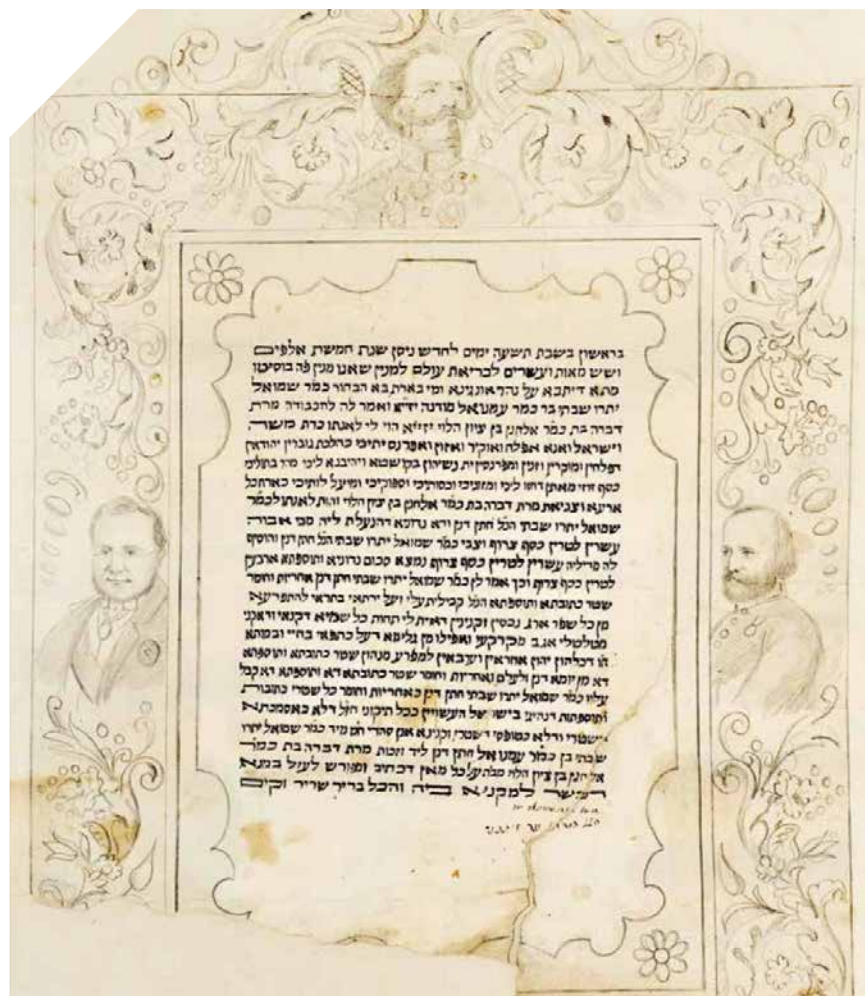 בראשון בשבת תשעה ימים לחדש ניסן שנת חמשת אלפים
ושש מאות ועשרים לבריאת עולם למנין שאנו מנין פה בוסיטו
מתא דיתבא על נהר אונגינא ומי בארת בא הבחור כמר שמואל
יתרו שבתי בר כמר עמנואל מודנה יז״א ואמר לה להכבודה מרת
דברה בת כמר אלחנן בן ציון הלוי יזי״א הוי לי לאנתו כדת משה
וישראל ואנא אפלח ואוקיר ואיזון ואפרנס יתיכי כהלכת גוברין יהודאין
דפלחין ומוקרין וזנין ומפרנסין ית נשיהון בקושטא ויהיבנא ליכי מהר בתוליכי
כסף זוזי מאתן דחזו ליכי ומזוניכי וכסותיכי וספוקיכי ומיעל לותיכי כארח כל
ארעא וצביאת מרת דברה בת כמר אלחנן בן ציון הלוי והות לאנתו לכמר
שמואל יתרו שבתי הנל חתן דנן ודא נדוניא דהנעלת ליה מבי אבוה
עשרין לטרין כסף צרוף וצבי כמר שמואל יתרו שבתי הנל חתן דנן והוסיף
לה מדיליה עשרין לטרין כסף צרוף נמצא סכום נדוניא ותוספתא ארבעין
לטרין כסף צרוף וכך אמר לן כמר שמואל יתרו שבתי חתן דנן אחריות וחומר
שטר כתובתא ותוספתא הנל קבילית עלי ועל ירתאי בתראי להתפרעא
מן כל שפר ארג נכסין וקנינין דאית לי תחות כל שמיא דקנאי ודאקני
מטלטלי אגב מקרקעי ואפילו מן גלימא דעל כתפאי בחיי ובמותא
דא מן יומא דנן ולעלם ואחריות וחומר שטר כתובתא דא ותוספתא דא קבל
עליו כמר שמואל יתרו שבתי חתן דנן כאחריות וחומר כל שטרי כתובות
ותוספתות דנהיגי בישראל העשויין ככל תיקוני חזל דלא כאסמכתא
ודלא כטופסי דשטרי וקנינא אנן סהדי חמ מיד כמר שמואל יתרו
שבתי בן כמר עמנואל חתן דנן ליד זכות מרת דברה בת כמר
אלחנן בן ציון הלוי על כל מאן דכתיב ומפורש לעיל במנא
דכשר למקניא ביה והכל בריר שריר וקים